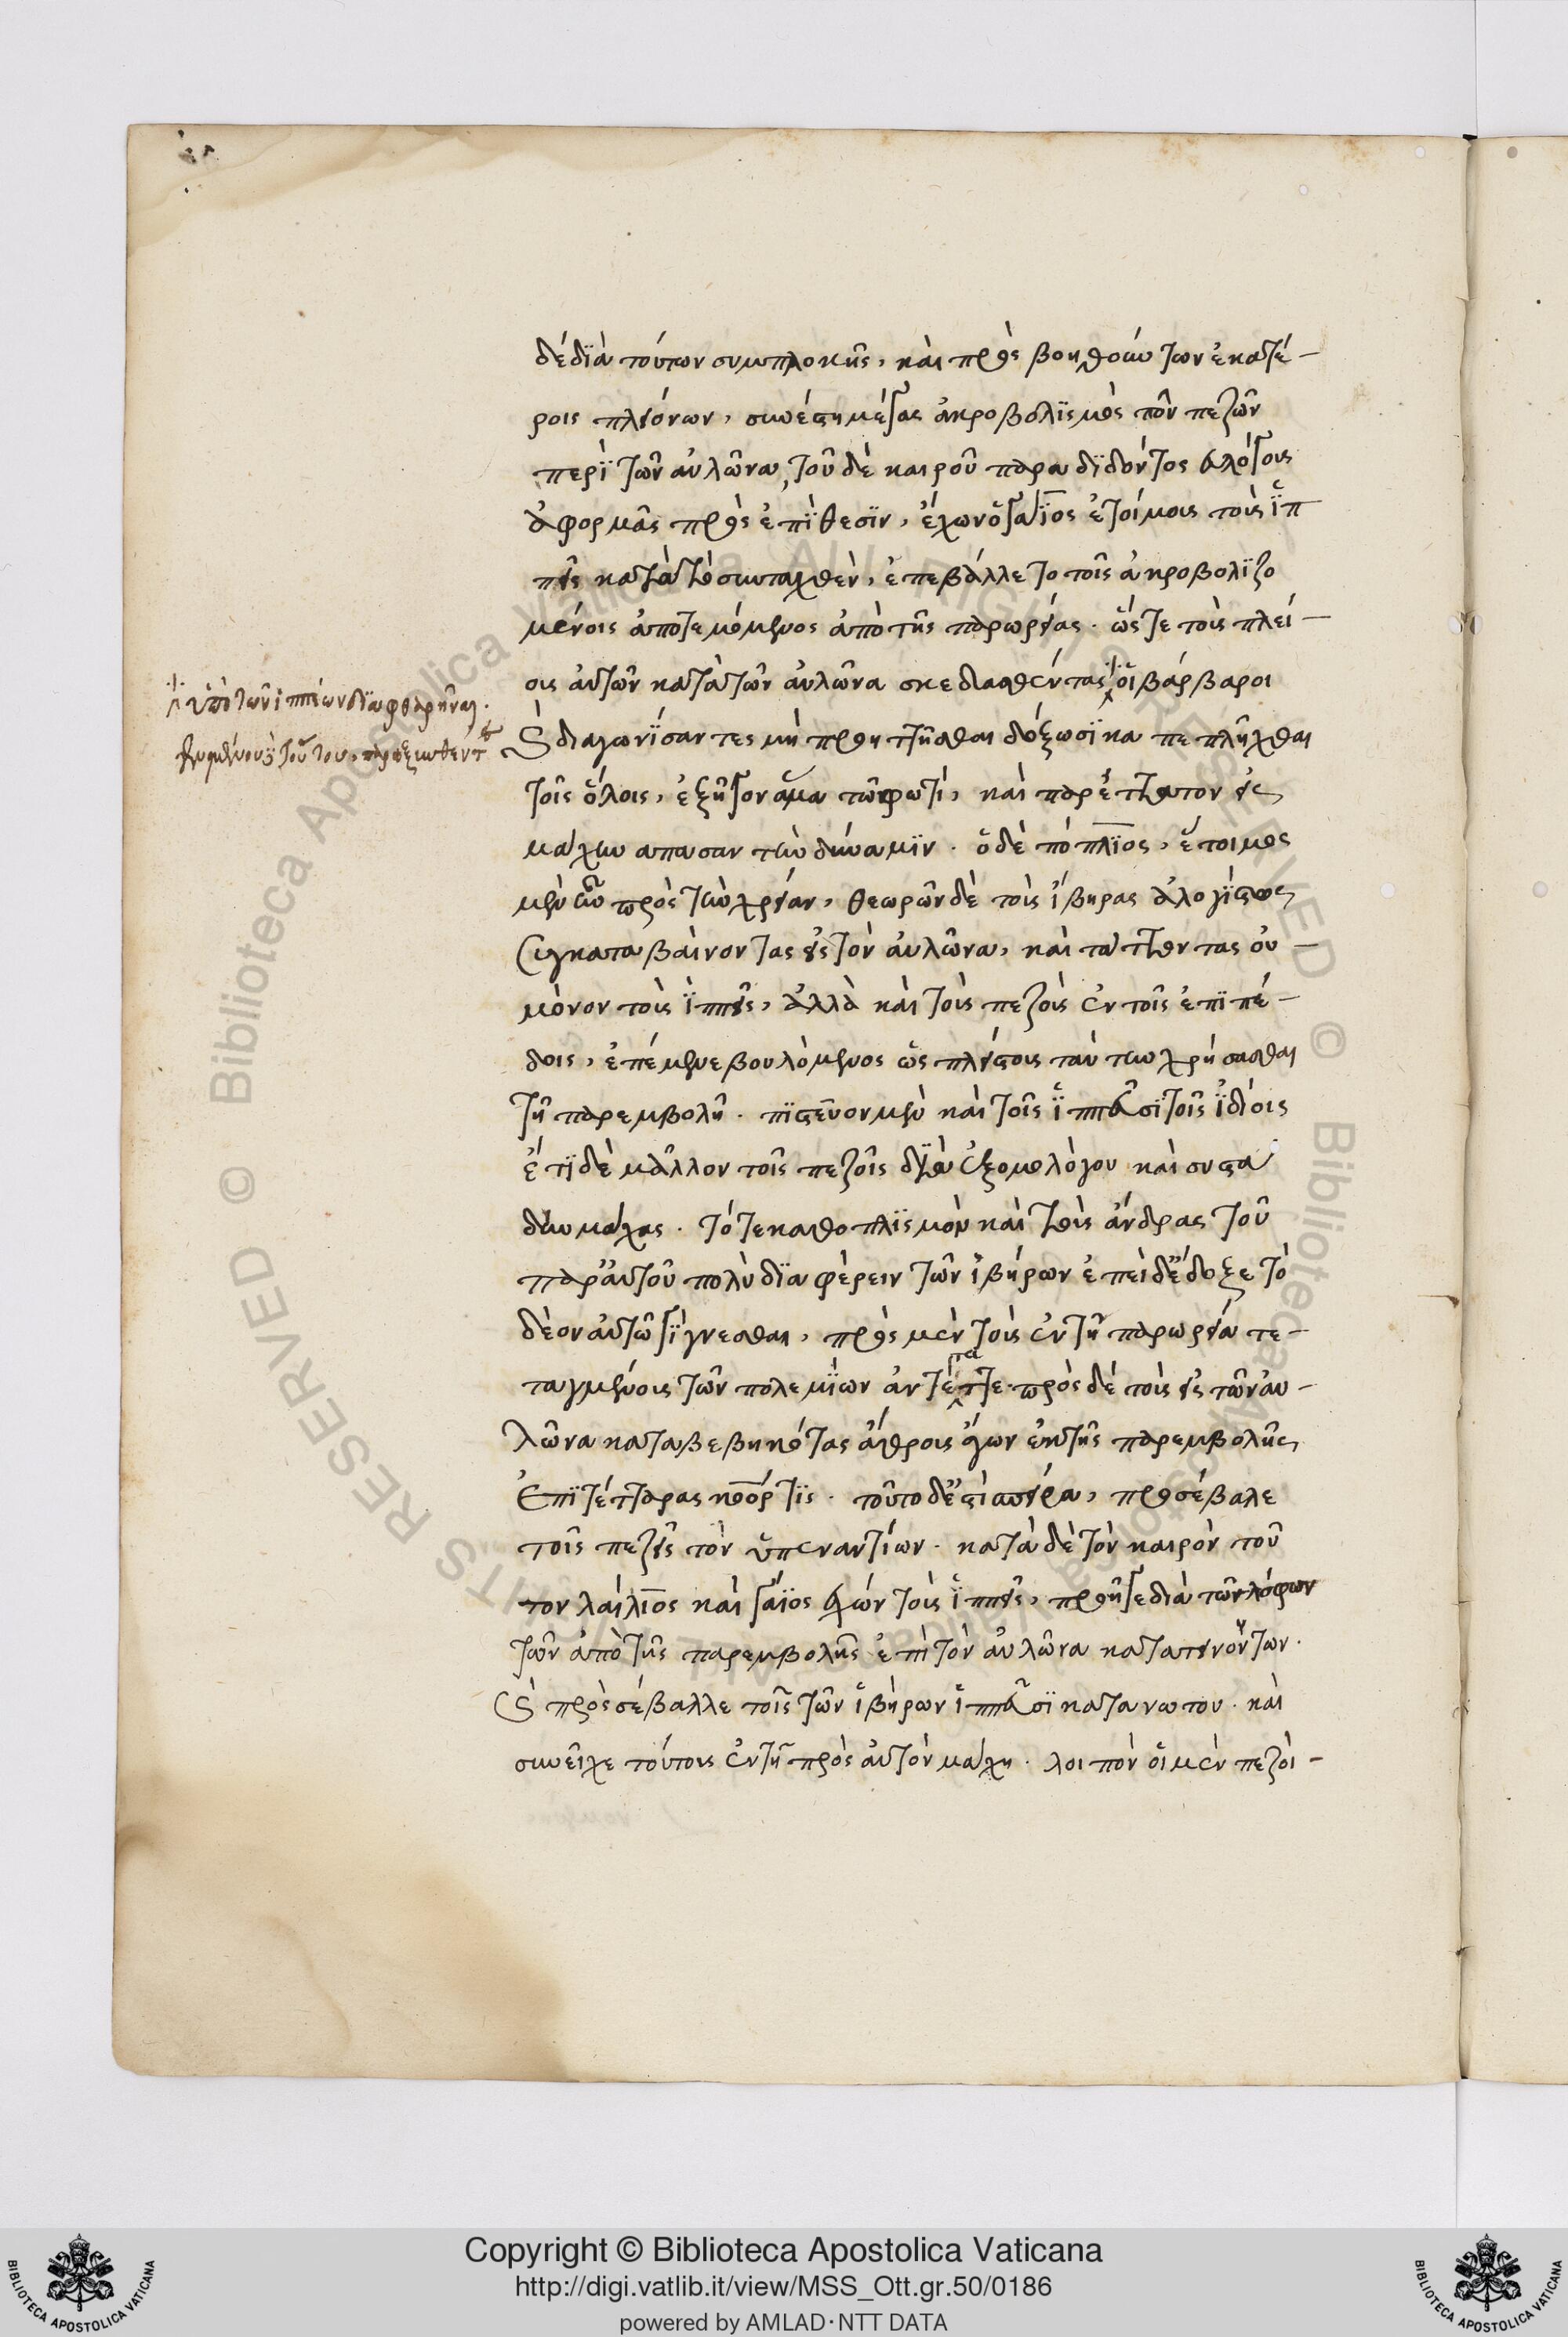 δὲ διὰ τούτων συμπλοκῆς, καὶ προς βοηθούντων ἑκατέ-
ροις πλειόνων, συνέστη μέγας ἀκροβολϊσμὸς τὸν πεζῶν
περὶ τῶν αὐλῶνα, τοῦ δὲ καιροῦ παραδϊδόντος εὐλόγους
ἀφορμὰς πρὸς ἐπϊθεσϊν, ἔχων ὁ γάϊος ἑτοίμους τοὺς ἱπ
πεῖς κατὰ τὸ συνταχθὲν, ἐπεβάλλετο τοῖς ἀκροβολϊζο
μένοις ἀποτεμόμενος ἀπὸ τῆς παρωρείας. ὥστε τοὺς πλεί-
ους αὐτῶν κατὰ τῶν αὐλῶνα σκεδασθέντας οἱ βάρβαροι
ὑπὸ τῶν ἱππέων διαφθαρῆναι.
γενομένου δὲ τούτου, παροξυνθέντες
καὶ διαγωνϊσαντες μὴ προηττῆσθαι δόξωσϊ κα πεπλῆχθαι
τοῖς ὅλοις, ἐξῆγον ἅμα τῶ φωτὶ, καὶ παρέταττον εἰς
μάχην απασαν τὴν δύναμϊν. ὁ δὲ πόπλϊος, ἕτοιμος
μὲν ἦν πρὸς τὴν χρείαν, θεωρῶν δὲ τοὺς ἴβηρας ἀλογίστως
συγκαταβαίνοντας εἰς τὸν αὐλῶνα, καὶ τάττοντας οὐ-
μόνον τοὺς ἱππεῖς, ἀλλὰ καὶ τοὺς πεζοὺς ἐν τοῖς ἐπϊπέ-
δοις, ἐπέμενε βουλόμενος ὡς πλείστους ταύτη χρήσασθαι
τῇ παρεμβολῇ. πϊστεύον μὲν καὶ τοῖς ἱππεῦσϊ τοῖς ἰδίοις
ἔτϊ δὲ μᾶλλον τοῖς πεζοῖς διὰ ἐξομολόγου καὶ συστα
δὴν μάχας. τό τε καθοπλϊσμὸν καὶ τοὺς ἄνδρας τοῦ
παρ' αὐτοῦ πολὺ διαφέρειν τῶν ἰβήρων ἐπεὶ δ' ἔδοξε τὸ
δέον αὐτῶ γίγνεσθαι, πρὸς μὲν τοὺς ἐν τῇ παρωρεία τε-
ταγμένους τῶν πολεμίων ἀντέταττε. πρὸς δέ τοὺς εἰς τῶν αυ-
λῶνα καταβεβηκότας ἄθρους ἄγων ἐκ τῆς παρεμβολῆς
ἐπϊ τέτταρας κοόρτϊς. τοῦτο δ' ἐστὶ σπεῖρα, προσέβαλε
τοῖς πεζεῖς τὸν ὑπεναντίων. κατὰ δὲ τὸν καιρὸν τοῦ
τον λαίλϊος καὶ γάϊος ἔχων τοὺς ἱππεῖς, προῆγε διὰ τῶν λόφων
τῶν ἀπὸ τῆς παρεμβολῆς ἐπὶ τὸν αὐλῶνα κατατεινόντων.
καὶ πρὸσέβαλλε τοῖς τῶν ἰβήρων ἱππεῦσϊ κατα νωτου. καὶ
συνεῖχε τούτους ἐν τῇ πρὸς αὐτὸν μάχη. λοιπὸν οἱ μὲν πεζοὶ-
Biblioteca Apostolica Vaticana ALL RIGHTS RESERVED © Biblioteca Apostolica Vaticana ALL RIGHTS RESERVED ©
Copyright © Biblioteca Apostolica Vaticana
http://digi.vatlib.it/view/MSS_Ott.gr.50/0186
powered by AMLAD·NTT DATA
BIBLIOTECA APOSTOLICA VATICANA
BIBLIOTECA APOSTOLICA VATICANA